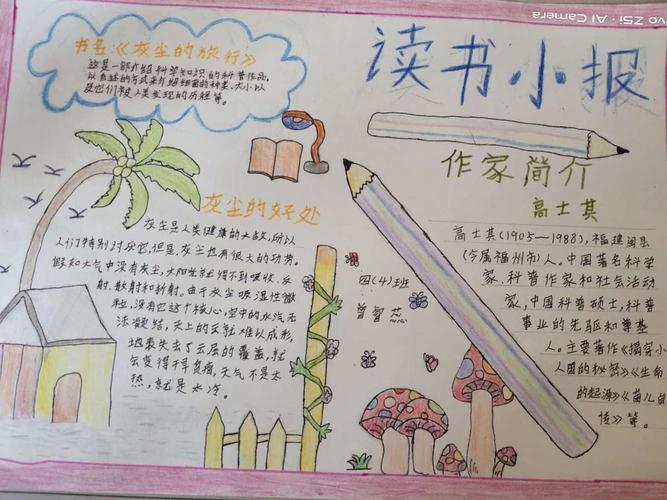 vivo Z5i · AI Camera
读书小报
书名:《灰尘的旅行》
这是一部介绍科学知识的科普作品,
以自述的方式来介绍细菌的种类、大小以
及它们被人类发现的历程等。
灰尘的好处
灰尘是人类健康的大敌,所以
人们特别讨厌它,但是,灰尘也有很大的功劳。
假如大气中没有灰尘,太阳光就得不到吸收、反
射、散射和折射。由于灰尘吸湿性微
粒,没有它这个核心,空中的水汽无
法凝结,天上的云就难以成形,
地表失去了云层的覆盖,就
会变得不美观,天气不是太
热,就是太冷。
四(4)班
曾智蕊
作家简介
高士其
高士其(1905—1988),福建闽县
(今属福州市)人。中国著名科学
家、科普作家和社会活动
家,中国科普硕士,科普
事业的先驱和奠基
人。主要著作《揭穿小
人国的秘密》《生命
的起源》《菌儿自
传》等。